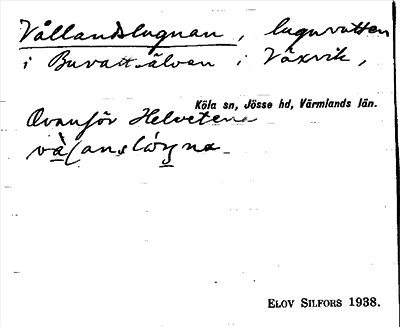 Vållandslugnan, lugnvatten
i Buvattsälven i Växvik,
Köla sn, Jösse hd, Värmlands län.
Ovanför Helvetena
ELOV SILFORS 1938.